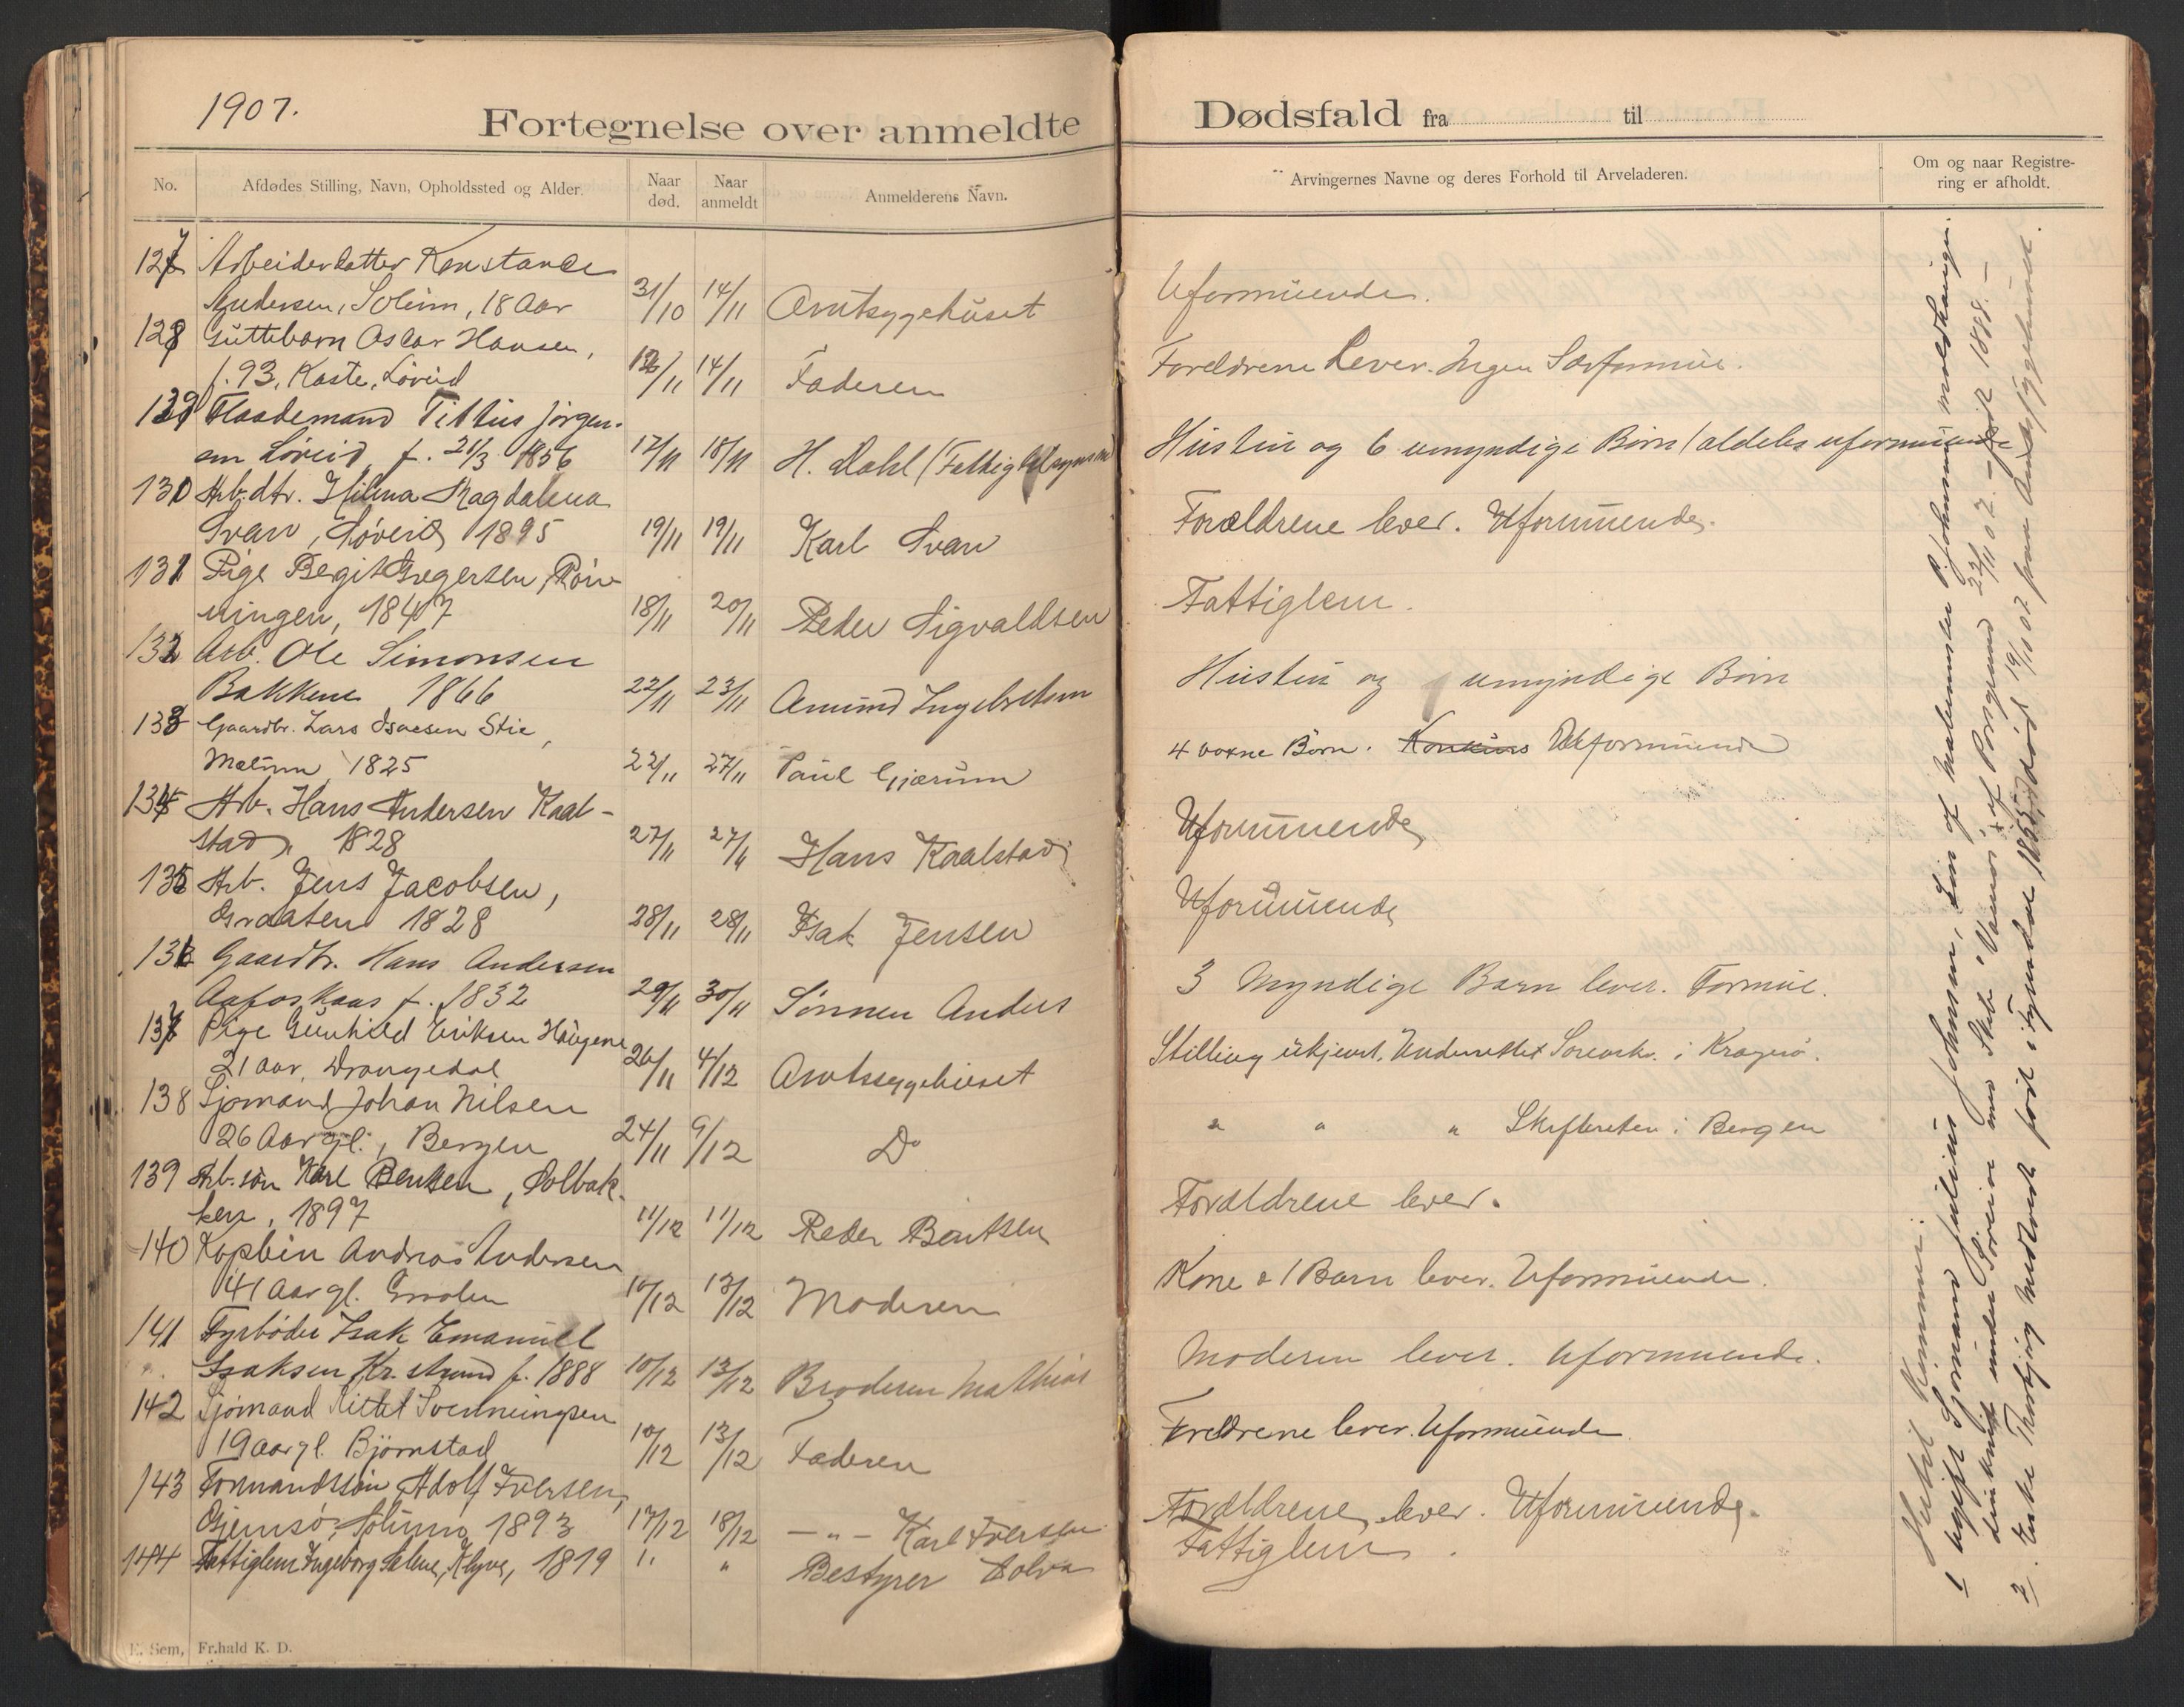 1907.
Fortegnelse over anmeldte
No.
Afdødes Stilling, Navn, Opholdssted og Alder.
Naar død.
Naar anmeldt
Anmelderens Navn.
127 Arbeiderdatter Konstance
Andersen, Solum, 18 Aar 31/10 14/11 Amtsygehuset
128 Guttebarn Oscar Hansen,
f. 93, Kaste, Løveid 12/11 14/11 Faderen
129 Flaademand Tittus Jörgen-
sen Löveid f. 21/3 1856 17/11 18/11 H. Dahl
130 Arb.dtr. Hilma Magdalena
Svan, Løveid 1895 19/11 19/11 Karl Svan
131 Pige Begit Gregersen, Røn-
ningen, 1847 18/11 20/11 Peder Sigvaldsen
132 Arb. Ole Simonsen
Bakkene 1866 22/11 23/11 Amund Ingebretsen
133 Gaardbr. Lars Isaesen Stie,
Mælum 1825 22/11 27/11 Paul Gjærum
134 Arb. Hans Andersen Kaal-
stad, 1828 27/11 27/11 Hans Kaalstad
135 Arb. Jens Jacobsen,
Graaten 1828 28/11 28/11 Isak Jensen
136 Gaardbr. Hans Andersen
Aafoskaas f. 1832 29/11 30/11 Sønnen Anders
137 Pige Gunhild Eriksen Haugene
21 aar, Drangedal 26/11 4/12 Amtssygehuset
138 Sjømand Johan Nilsen
26 Aar gl., Bergen 24/11 9/12 Do
139 Arb.søn Karl Bentsen, Solbak-
ken, 1897 11/12 11/12 Peder Bentsen
140 Kaptein Andreas Andersen
41 Aar gl. 10/12 13/12 Moderen
141 Fyrbøder Isak Emanuel
Isaksen Kr.strand f. 1888 10/12 13/12 Broderen Mathias
142 Sjømand Kittel Svenningsen
19 aar gl. Björnstad 10/12 13/12 Faderen
143 Formandssøn Adolf Iversen,
Gjemsø, Solum, 1893 17/12 18/12 — " — Karl Iversen
144 Fattiglem Ingeborg Salene, Klyve, 1819 " " Bestyrer Tolva
E. Sem, Fr.hald K. D.
Dødsfald fra til
Arvingernes Navne og deres Forhold til Arveladeren.
Om og naar Registre-
ring er afholdt.
Uformuende.
Foreldrene lever. Ingen Særformue.
Hustru og 6 umyndige Börn (aldeles uformuende
Forældrene lever. Uformuende.
Fattiglem.
Hustru og umyndige Børn
4 voxne Børn. Konkurs Uformuende
Uformuende
Uformuende
3 Myndige Barn lever. Formue.
Stilling ukjent. Underrettet Sorenskr. i Kragerö.
" " " Skifteretten i Bergen
Forældrene lever.
Kone & 1 Barn lever. Uformuende.
Moderen lever. Uformuende.
Foreldrene lever. Uformuende
Forældrene lever. Uformuende.
Fattiglem.
1 ugift Sjömand Julius Johansen, Søn af Malermester P. Johannsen
af Porsgrund 22/11 07. - født 1888. -
2. Enke Thorbjørg født i 1855, død 19/10 07 paa Amtssygehuset.